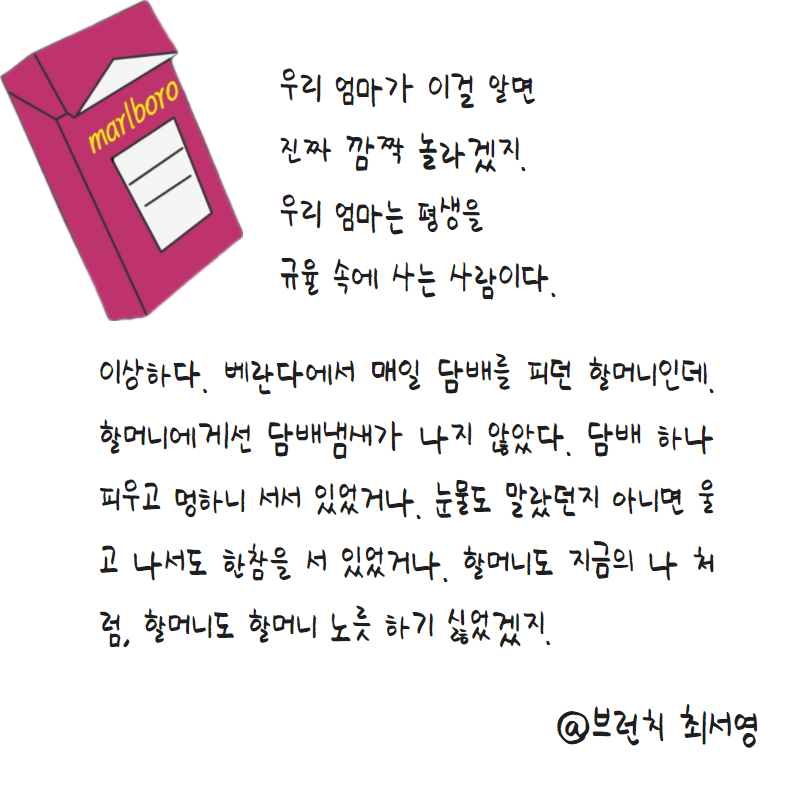 marlboro
우리 엄마가 이걸 알면
진짜 깜짝 놀라겠지.
우리 엄마는 평생을
규율 속에 사는 사람이다.
이상하다. 베란다에서 매일 담배를 피던 할머니인데.
할머니에게선 담배냄새가 나지 않았다. 담배 하나
피우고 멍하니 서서 있었거나. 눈물도 말랐던지 아니면 울
고 나서도 한참을 서 있었거나. 할머니도 지금의 나 처
럼, 할머니도 할머니 노릇 하기 싫었겠지.
@브런치 최서영